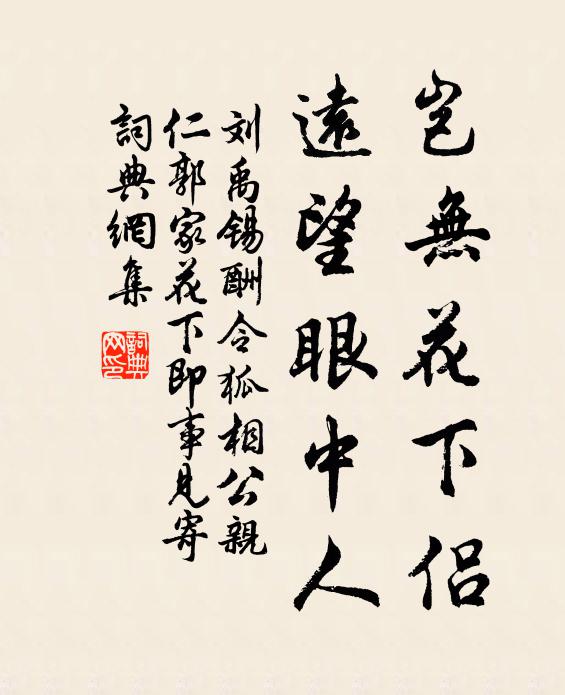 岂無花下侶
遠望眼中人
刘禹锡酬令狐相公親
仁郭家花下即事見寄
詞典網集
詞典网印